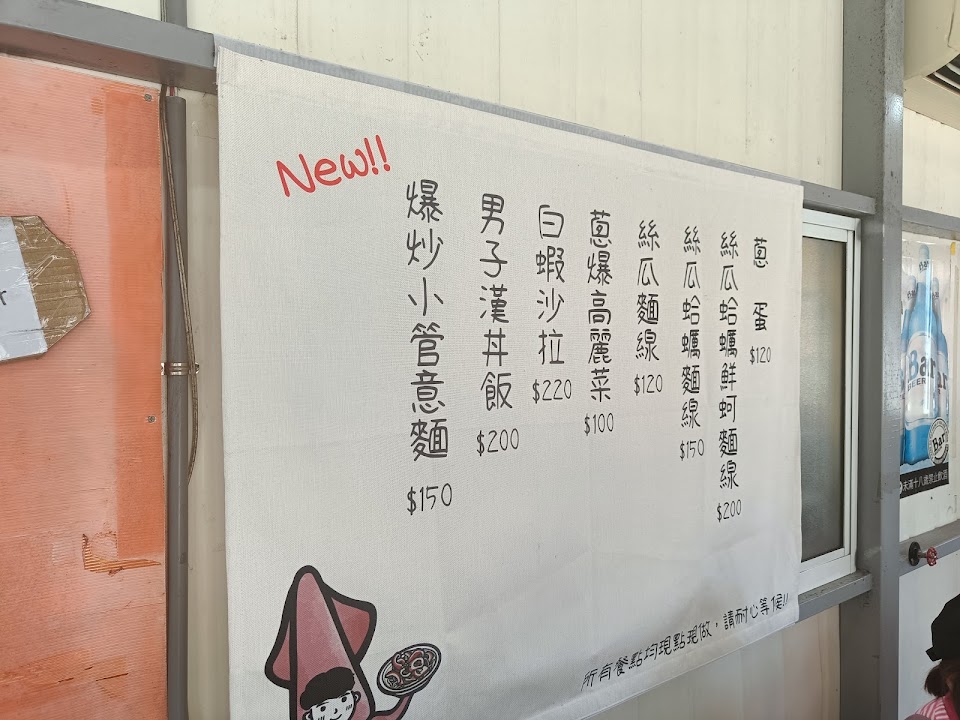 New!!
蔥蛋
$120
絲瓜蛤蠣鮮蚵麵線
$200
絲瓜蛤蠣麵線
$150
絲瓜麵線
$120
蔥爆高麗菜
$100
白蝦沙拉
$220
男子漢丼飯
$200
爆炒小管意麵
$150
所有餐點均現點現做，請耐心等候!!
Bar
BEER
Bar
未滿十八歲禁止飲酒
r